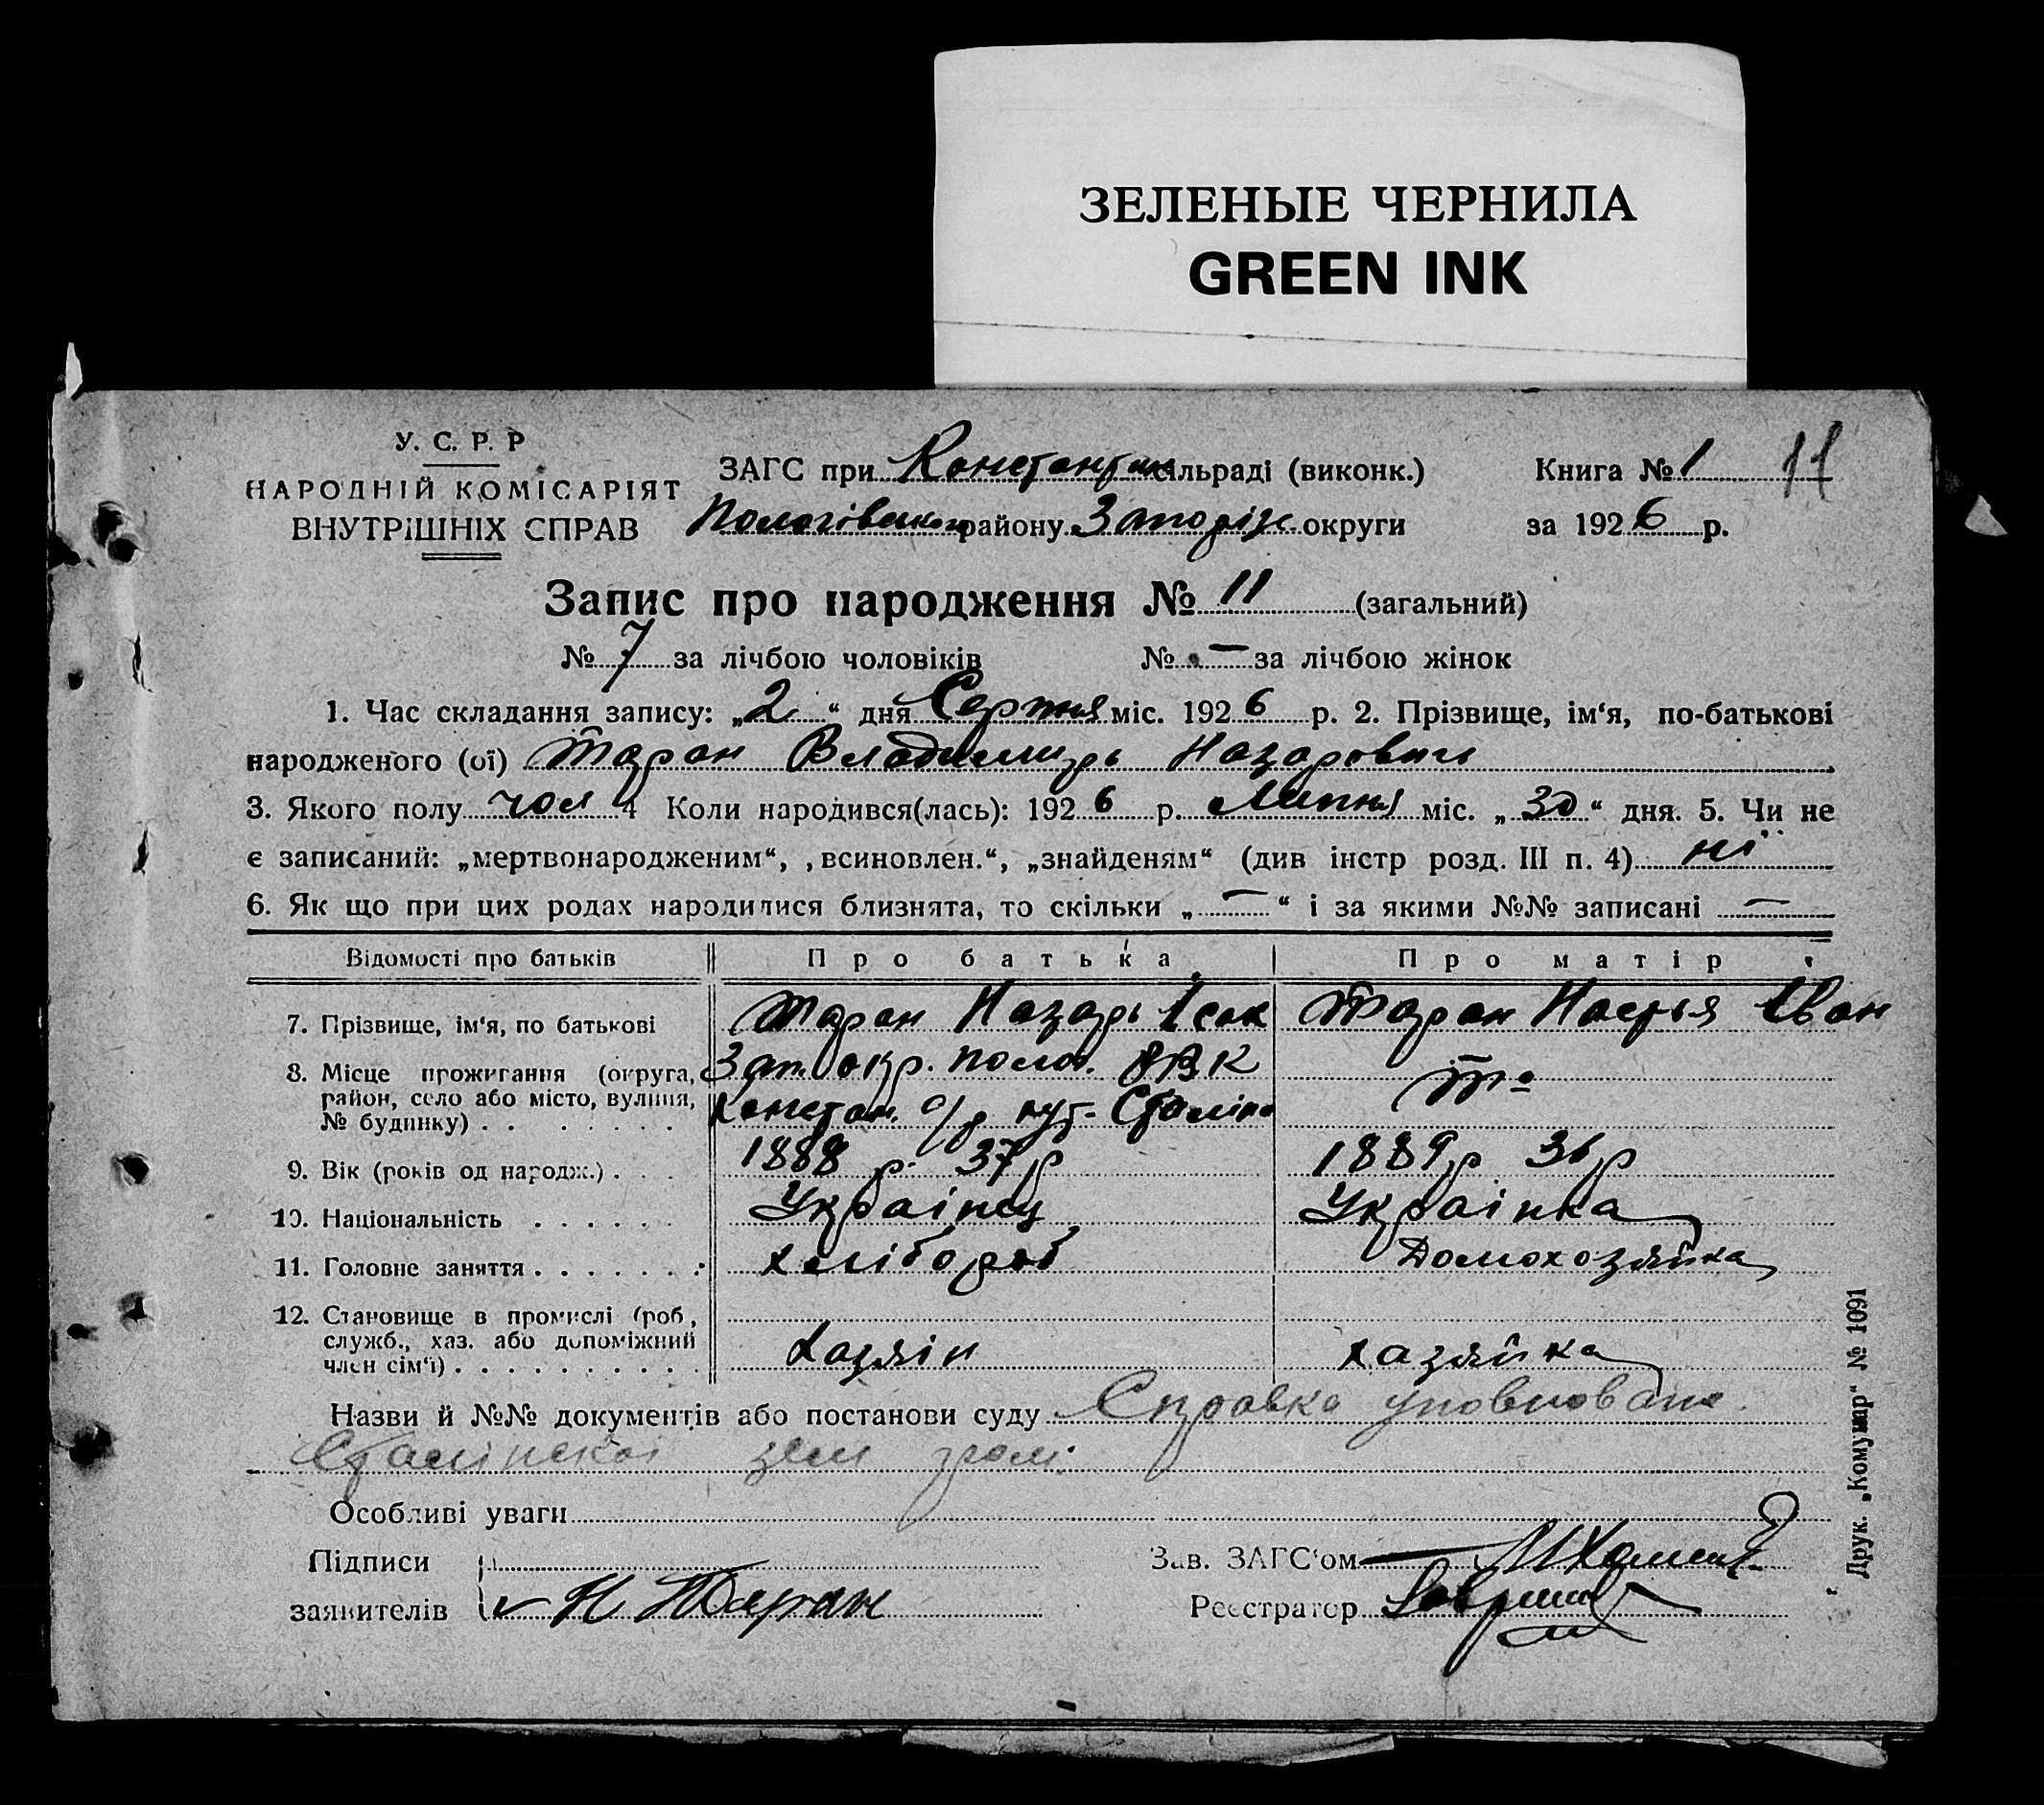 ЗЕЛЕНЫЕ ЧЕРНИЛА
GREEN INK
У. С. Р. Р
НАРОДНІЙ КОМІСАРІЯТ
ВНУТРІШНІХ СПРАВ
ЗАГС при Константин сільраді (виконк.)
Пологівського району Запоріж округи
Книга № 1
11
за 1926 р.
Запис про народження № 11 (загальний)
№ 7 за лічбою чоловіків № — за лічбою жінок
1. Час складання запису: „2“ дня Серпня міс. 1926 р. 2. Прізвище, ім‘я, по-батькові
народженого (ої) Таран Владимирь Назаровичь
3. Якого полу чол 4 Коли народився(лась): 1926 р. Липня міс. „30“ дня. 5. Чи не
є записаний: „мертвонародженим“, „всиновлен.“, „знайденям“ (див інстр розд. III п. 4) ні
6. Як що при цих родах народилися близнята, то скільки „—“ і за якими №№ записані —
Відомості про батьків Про батька Про матір
7. Прізвище, ім‘я, по батькові Таран Назарь Ісак Таран Настья Іван
8. Місце проживання (округа, Зап. окр. полог. РВК
район, село або місто, вулиця, Констан. с/р хут. Сталіно то
№ будинку)
9. Вік (років од народж.) 1888 р. 37 р 1889 р 36 р
10. Національність Українец Українка
11. Головне заняття хлібороб Домохозяйка
12. Становище в промислі (роб,
служб., хаз. або допоміжний
член сім‘ї) хазяін хазяйка
Назви й №№ документів або постанови суду Справка уповноваж.
Сталінскої зем гром.
Особливі уваги
Підписи Зав. ЗАГС‘ом
заявителів Н Таран Реєстратор
Друк. „Комунар“ № 1091